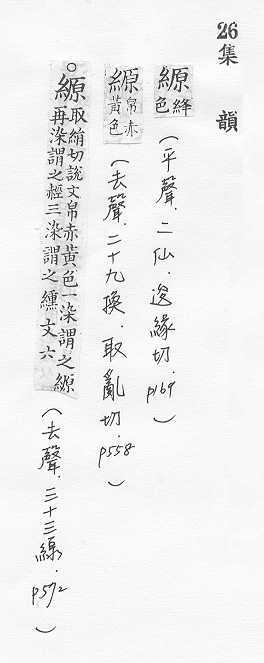 26
集韻
縓絳色(平聲.二仙.逡緣切.p169)
縓帛赤黃色(去聲.二十九換.取亂切.p558)
○縓取絹切說文帛赤黃色一染謂之縓
再染謂之䞓三染謂之纁文六(去聲.三十三線.p572)